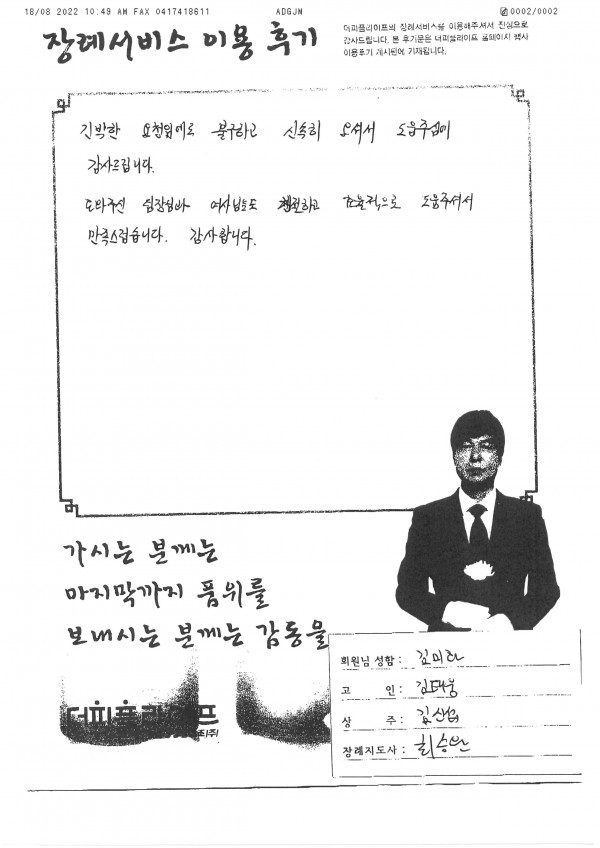 18/08 2022 10:49 AM FAX 0417418611 ADGJM 0002/0002
장례서비스 이용 후기
더피플라이프의 장례서비스를 이용해주셔서 진심으로
감사드립니다. 본 후기문은 더피플라이프 홈페이지 행사
이용후기 게시판에 기재됩니다.
긴박한 요청임에도 불구하고 신속히 오셔서 도움주심에
감사드립니다.
도와주신 팀장님과 여사님들도 친절하고 효율적으로 도움주셔서
만족스럽습니다. 감사합니다.
가시는 분께는
마지막까지 품위를
보내시는 분께는 감동을
회원님 성함 : 김미라
고 인 : 김태웅
상 주 :
장례지도사 : 최승완
더피플라이프